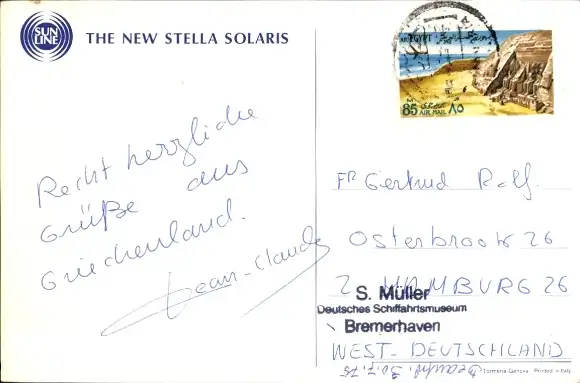 SUN
LINE
THE NEW STELLA SOLARIS
EGYPT
85
AIR MAIL
٨٥
Recht herzliche
Grüße aus
Griechenland.
Jean-Claude
Fr Gertrud Rolf.
Osterbrook 26
2 HAMBURG 26
WEST-DEUTSCHLAND
S. Müller
Deutsches Schiffahrtsmuseum
Bremerhaven
30.7.75
Formeria-Genova Printed in Italy